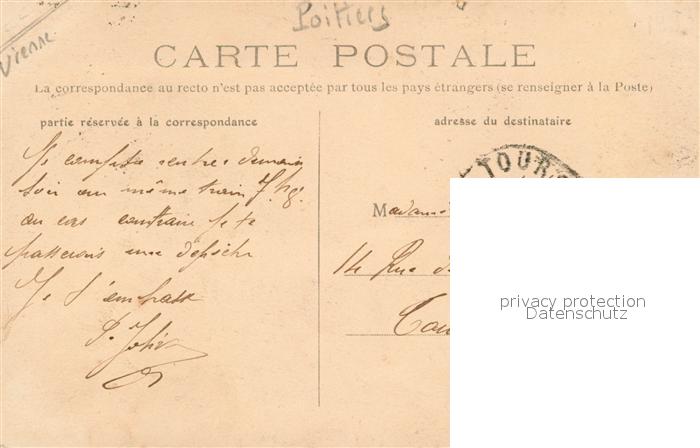 Poitiers
Vienne
CARTE POSTALE
La correspondance au recto n'est pas acceptée par tous les pays étrangers (se renseigner à la Poste)
partie réservée à la correspondance
adresse du destinataire
Je compte rentrer demain
soir au même train 7h
au cas contraire je te
passerais une dépêche
Je t'embrasse
TOURS
Madame
14 Rue d
privacy protection
Datenschutz